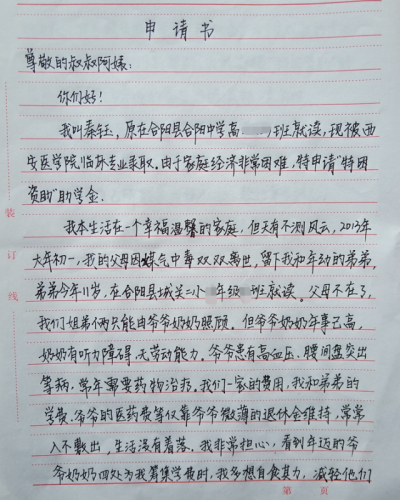 申请书
尊敬的叔叔阿姨：
你们好！
我叫秦钰，原在合阳县合阳中学高班就读，现被西
安医学院临床专业录取。由于家庭经济非常困难，特申请“特困
资助”助学金.
我本生活在一个幸福温馨的家庭，但天有不测风云，2013年
大年初一，我的父母因煤气中毒双双离世，留下我和年幼的弟弟，
弟弟今年11岁，在合阳县城关二小年级班就读。父母不在了，
我们姐弟俩只能由爷爷奶奶照顾。但爷爷奶奶年事已高，
奶奶有听力障碍，无劳动能力。爷爷患有高血压、腰间盘突出
等病，常年需要药物治疗。我们一家的费用，我和弟弟的
学费，爷爷的医药费等仅靠爷爷微薄的退休金维持，常常
入不敷出，生活没有着落。我非常担心，看到年迈的爷
爷奶奶四处为我筹集学费时，我多想自食其力，减轻他们
装
订
线
第 页